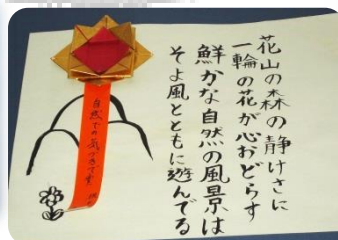 花山の森の静けさに
一輪の花が心おどらす
鮮かな自然の風景は
そよ風とともに遊んでる
自然での気づきで賞